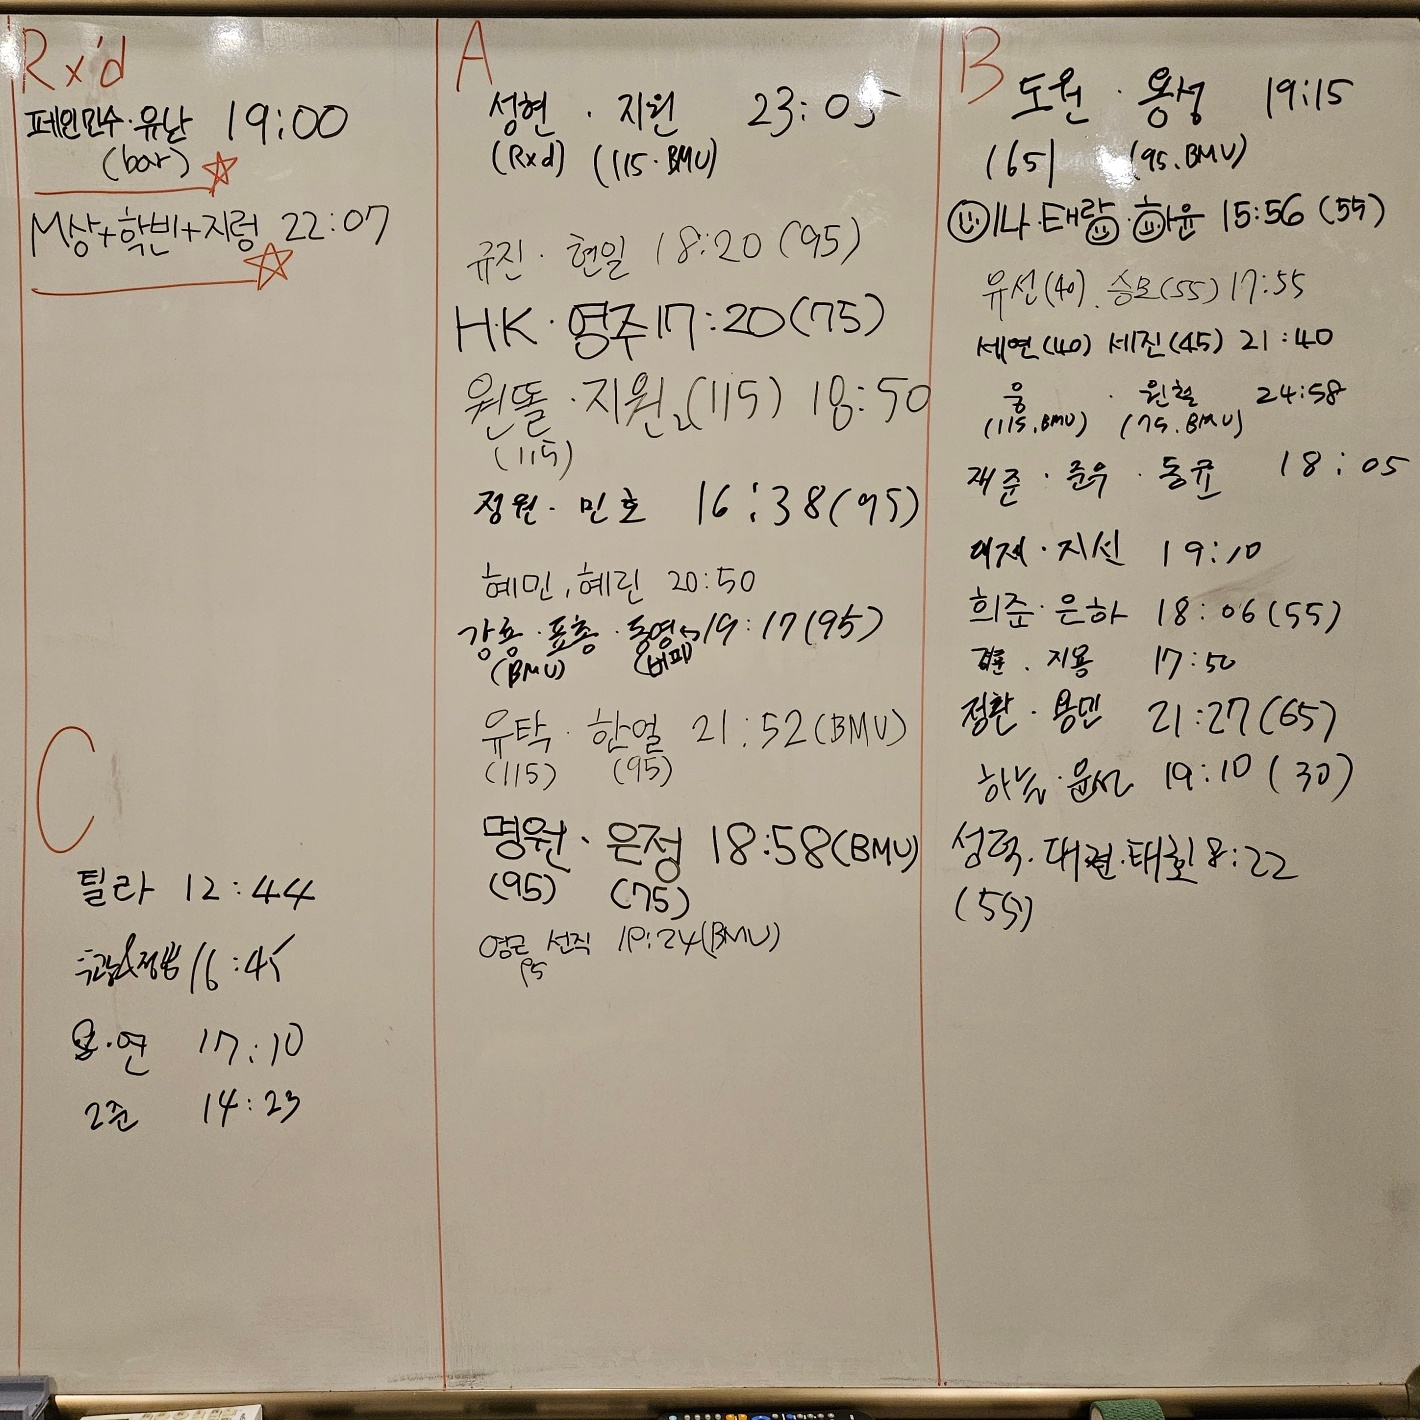 Rx'd
페인민수·유난 19:00
(bar)
M상+학빈+지렁 22:07
A
성현 · 지원 23:05
(Rxd) (115·BMU)
규진· 현일 18:20 (95)
H·K· 영주 17:20 (75)
원똘 · 지원2 (115) 18:50
(115)
정원· 민호 16:38 (95)
혜민, 혜린 20:50
강홍 · 표총 · 동영 19:17 (95)
(BMU) (버피)
유탁 · 한얼 21:52 (BMU)
(115) (95)
명원· 은정 18:58 (BMU)
(95) (75)
영근 선직 19:24 (BMU)
95
B
도원 · 용성 19:15
(65) (95.BMU)
이나·태람·하윤 15:56 (55)
유선(40). 승모(55) 17:55
세연(40) 세진(45) 21:40
웅 · 원철 24:58
(115.BMU) (75.BMU)
재준 · 준우 · 동규 18:05
지선 19:10
희준· 은하 18:06 (55)
지용 17:50
정환 · 용민 21:27 (65)
하늘·윤서 19:10 (30)
성력·대견·태호 18:22
(55)
C
틸라 12:44
16:45
연 17:10
2준 14:23